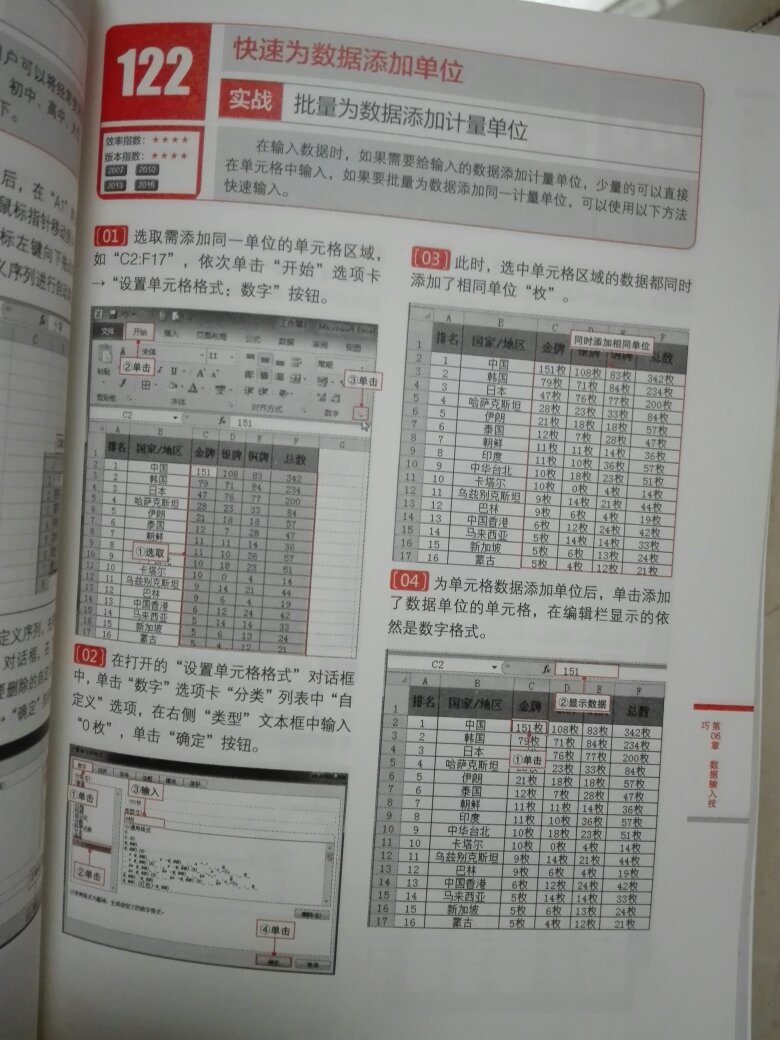 122
快速为数据添加单位
实战 批量为数据添加计量单位
效率指数：★★★★
版本指数：★★★★
2007 2010
2013 2016
在输入数据时，如果需要给输入的数据添加计量单位，少量的可以直接
在单元格中输入，如果要批量为数据添加同一计量单位，可以使用以下方法
快速输入。
[01] 选取需添加同一单位的单元格区域，
如“C2:F17”，依次单击“开始”选项卡
→“设置单元格格式：数字”按钮。
文件 开始 插入 页面布局 公式 数据 审阅 视图
②单击
③单击
C2 fx 151
排名 国家/地区 金牌 银牌 铜牌 总数
1 中国 151 108 83 342
2 韩国 79 71 84 234
3 日本 47 76 77 200
4 哈萨克斯坦 28 23 33 84
5 伊朗 21 18 18 57
6 泰国 12 7 28 47
朝鲜 11 11 14 36
①选取 11 10 36 57
10 18 23 51
卡塔尔 10 0 4 14
11 乌兹别克斯坦 9 14 21 44
12 巴林 9 6 4 19
13 中国香港 6 12 24 42
14 马来西亚 5 14 14 33
15 新加坡 5 6 13 24
16 蒙古 5 4 12 21
[02] 在打开的“设置单元格格式”对话框
中，单击“数字”选项卡“分类”列表中“自
定义”选项，在右侧“类型”文本框中输入
“0枚”，单击“确定”按钮。
①单击
③输入
②单击
④单击
确定
[03] 此时，选中单元格区域的数据都同时
添加了相同单位“枚”。
同时添加相同单位
排名 国家/地区 金牌 总数
1 中国 151枚 108枚 83枚 342枚
2 韩国 79枚 71枚 84枚 234枚
3 日本 47枚 76枚 77枚 200枚
4 哈萨克斯坦 28枚 23枚 33枚 84枚
5 伊朗 21枚 18枚 18枚 57枚
6 泰国 12枚 7枚 28枚 47枚
7 朝鲜 11枚 11枚 14枚 36枚
8 印度 11枚 10枚 36枚 57枚
9 中华台北 10枚 18枚 23枚 51枚
10 卡塔尔 10枚 0枚 4枚 14枚
11 乌兹别克斯坦 9枚 14枚 21枚 44枚
12 巴林 9枚 6枚 4枚 19枚
13 中国香港 6枚 12枚 24枚 42枚
14 马来西亚 5枚 14枚 14枚 33枚
15 新加坡 5枚 6枚 13枚 24枚
16 蒙古 5枚 4枚 12枚 21枚
[04] 为单元格数据添加单位后，单击添加
了数据单位的单元格，在编辑栏显示的依
然是数字格式。
C2 fx 151
②显示数据
排名 国家/地区 金牌 总数
1 中国 151枚 108枚 83枚 342枚
2 韩国 79枚 71枚 84枚 234枚
3 日本 76枚 77枚 200枚
①单击
4 哈萨克斯坦 23枚 33枚 84枚
5 伊朗 21枚 18枚 18枚 57枚
6 泰国 12枚 7枚 28枚 47枚
7 朝鲜 11枚 11枚 14枚 36枚
8 印度 11枚 10枚 36枚 57枚
9 中华台北 10枚 18枚 23枚 51枚
10 卡塔尔 10枚 0枚 4枚 14枚
11 乌兹别克斯坦 9枚 14枚 21枚 44枚
12 巴林 9枚 6枚 4枚 19枚
13 中国香港 6枚 12枚 24枚 42枚
14 马来西亚 5枚 14枚 14枚 33枚
15 新加坡 5枚 6枚 13枚 24枚
16 蒙古 5枚 4枚 12枚 21枚
第06章 数据输入技巧